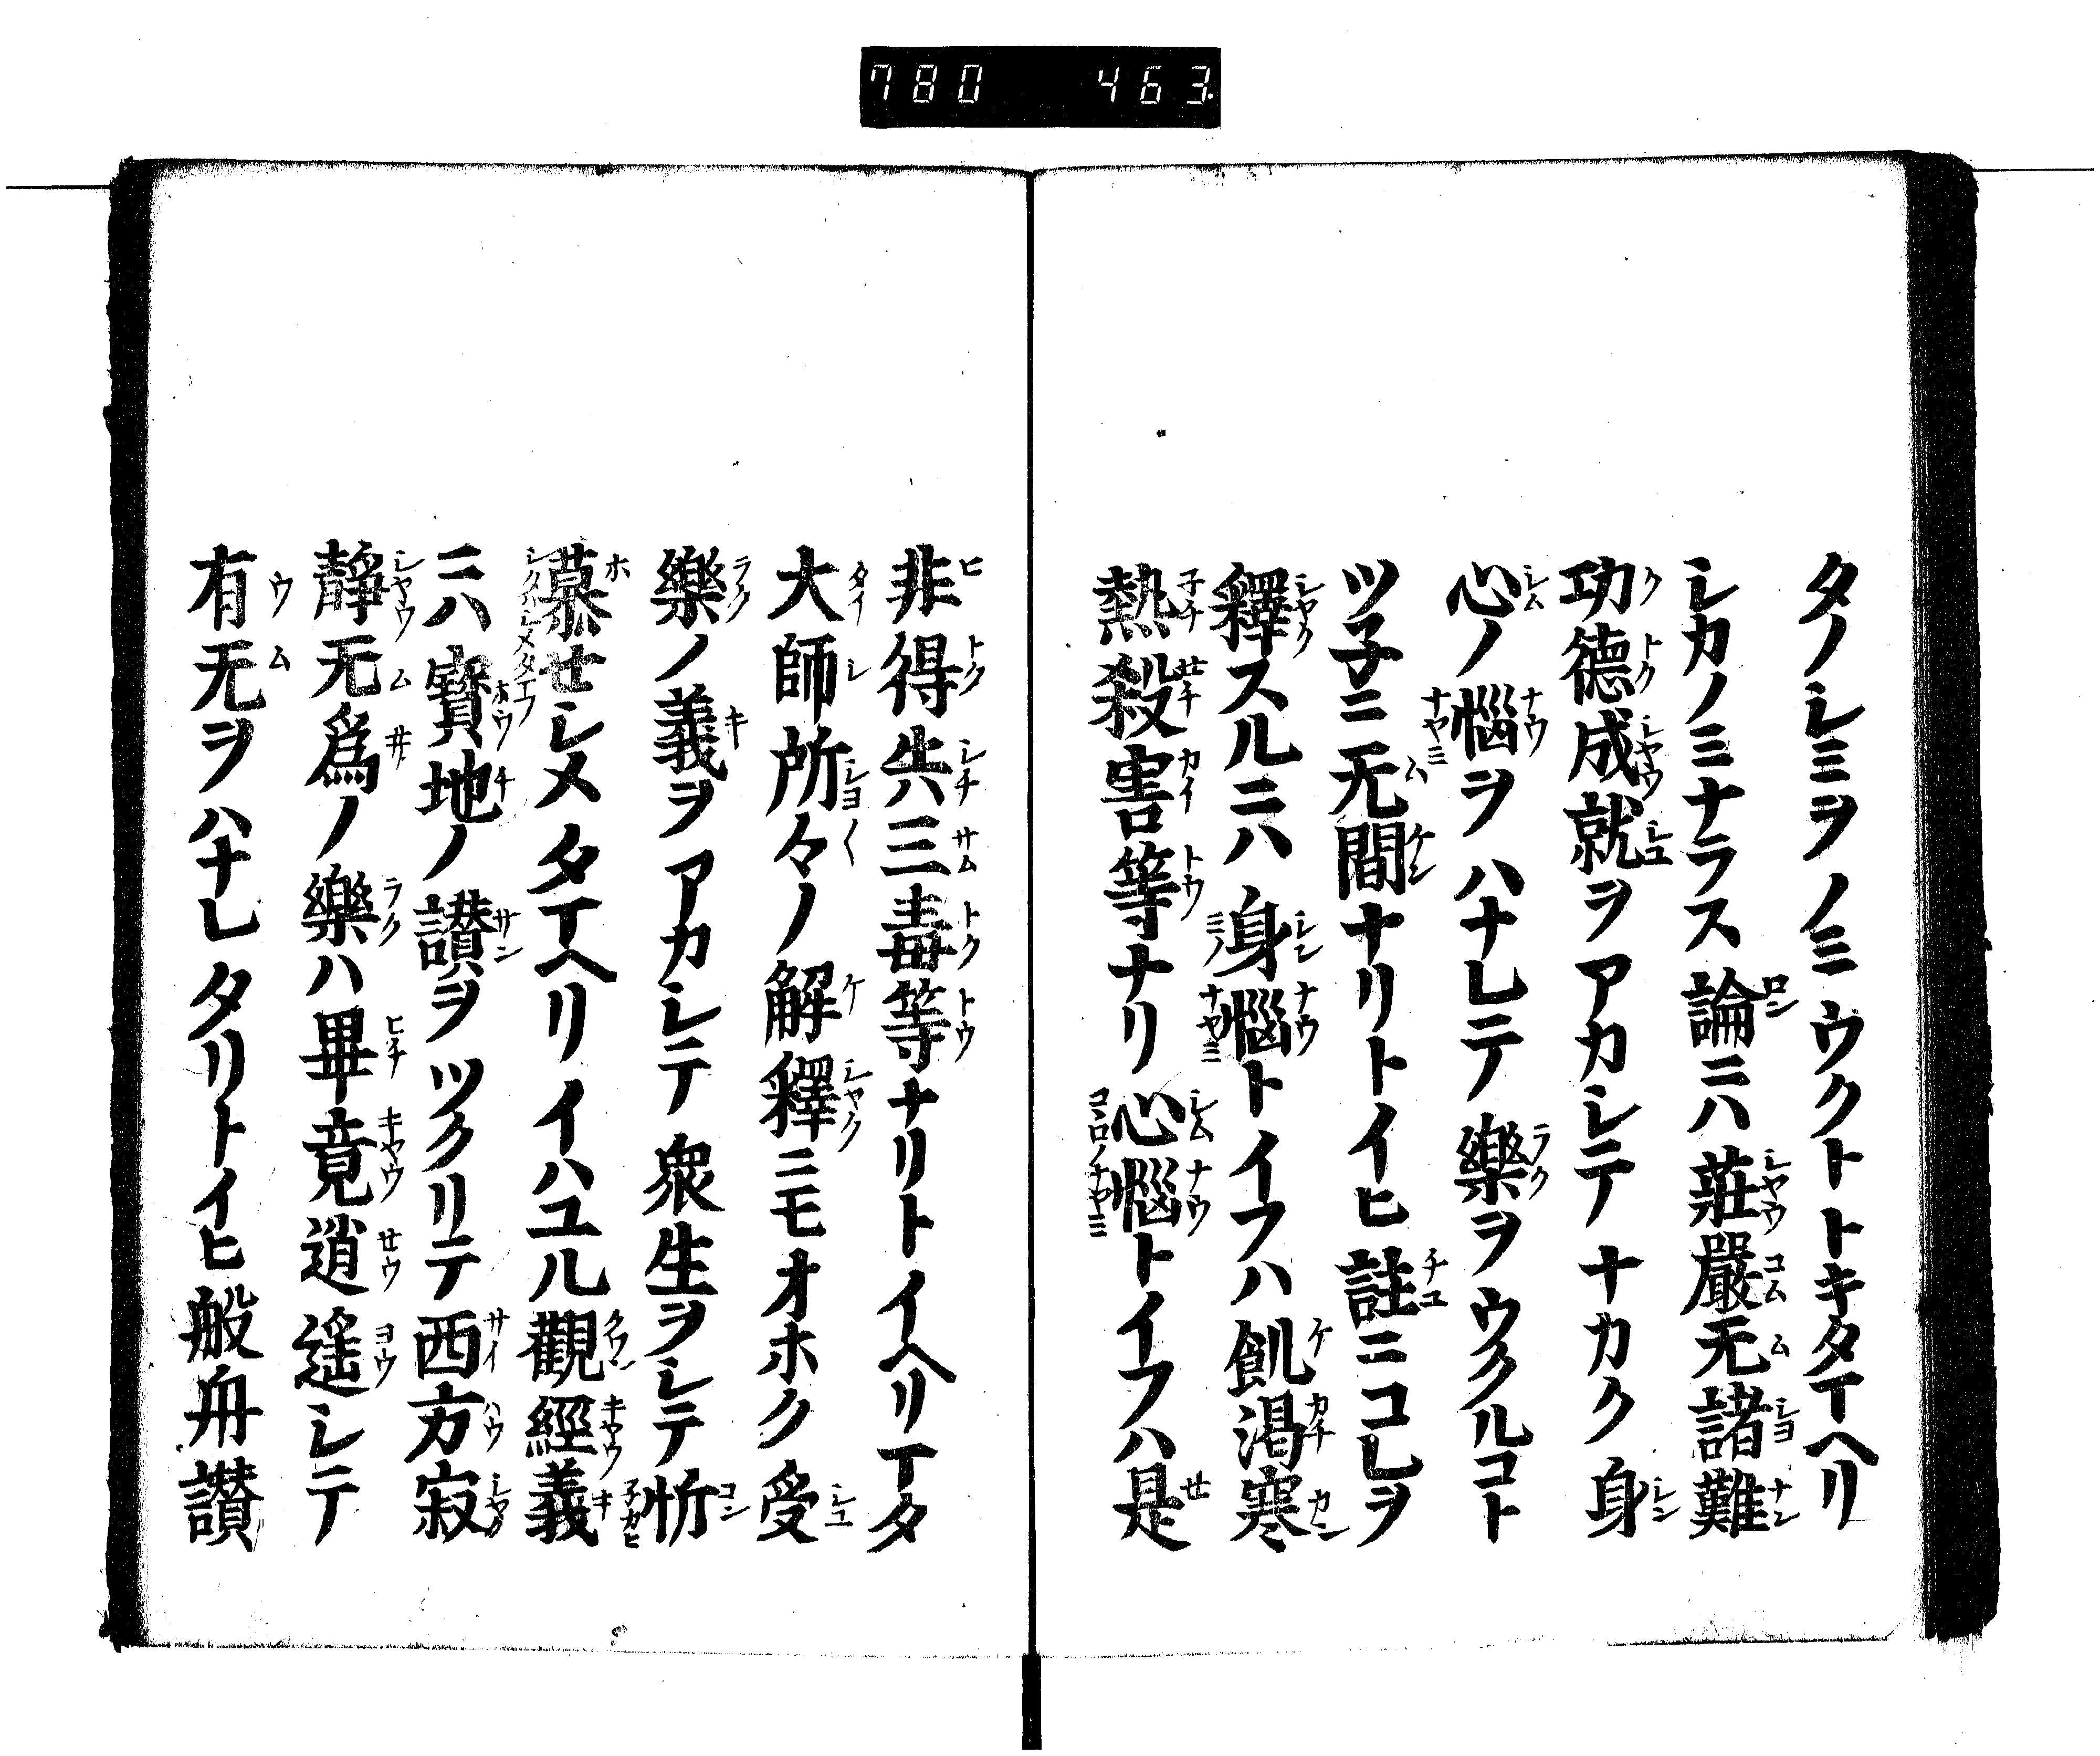 780 463.
タノシミヲノミウクトトキタマヘリ
シカノミナラス論ニハ莊嚴无諸難
功德成就ヲアカシテナカク身
心ノ惱ヲハナレテ樂ヲウクルコト
ツ子ニ无間ナリトイヒ註ニコレヲ
釋スルニハ身惱トイフハ飢渇寒
熱殺害等ナリ心惱トイフハ是
非得失三毒等ナリトイヘリマタ
大師所々ノ解釋ニモオホク受
樂ノ義ヲアカシテ衆生ヲシテ忻
慕セシメタマヘリイハユル觀經義
ニハ寳地ノ讃ヲツクリテ西方寂
靜无爲ノ樂ハ畢竟逍遙シテ
有无ヲハナレタリトイヒ般舟讃